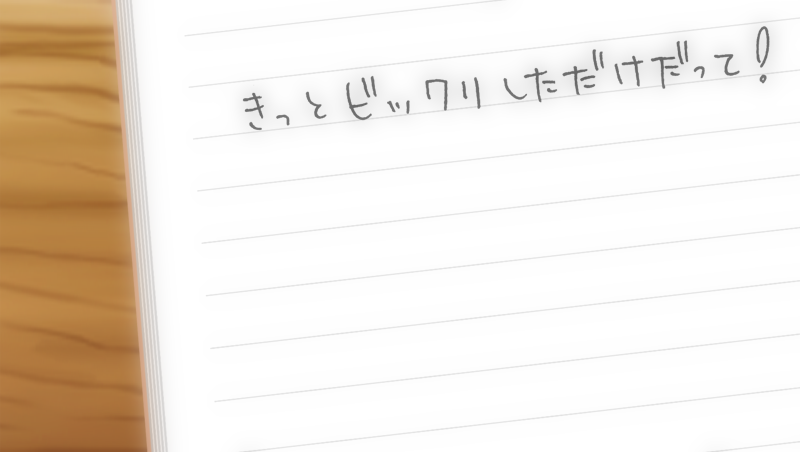 きっとビックリしただけだって!